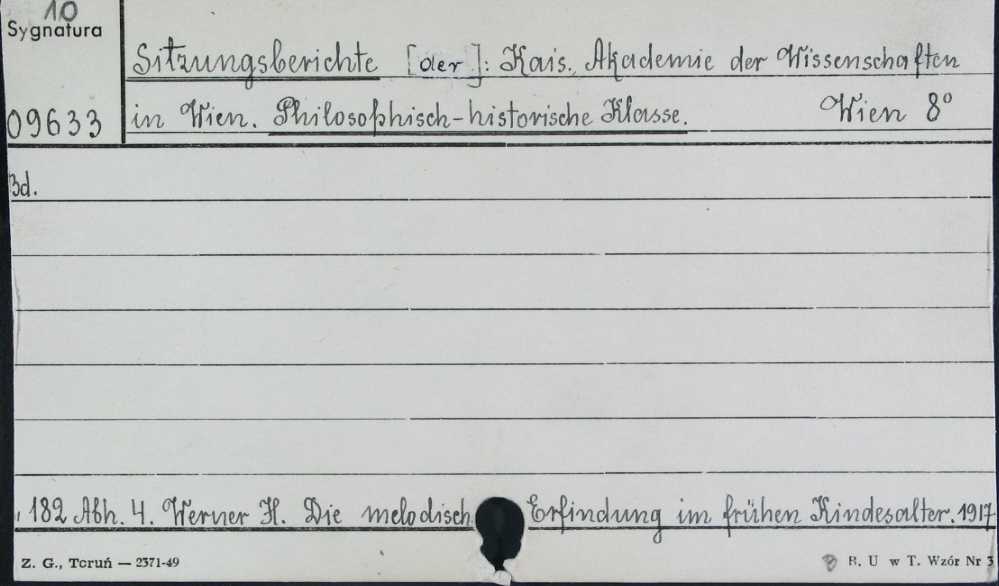 10
Sygnatura
Sitzungsberichte [der]: Kais. Akademie der Wissenschaften
09633 in Wien. Philosophisch-historische Klasse. Wien 8°
Bd.
182 Abh. 4. Werner H. Die melodisch Erfindung im frühen Kindesalter. 1917
Z. G., Toruń — 2371-49 B. U w T. Wzór Nr 3